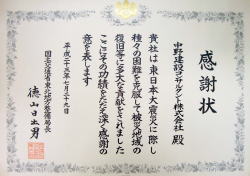 感謝状
中野建設コンサルタント株式会社 殿
貴社は東日本大震災に際し
種々の困難を克服して被災地域の
復旧等に多大な貢献をされました
ここにその功績をたたえ深く感謝の
意を表します
平成二十九年七月二十九日
国土交通省東北地方整備局長
徳山日出男